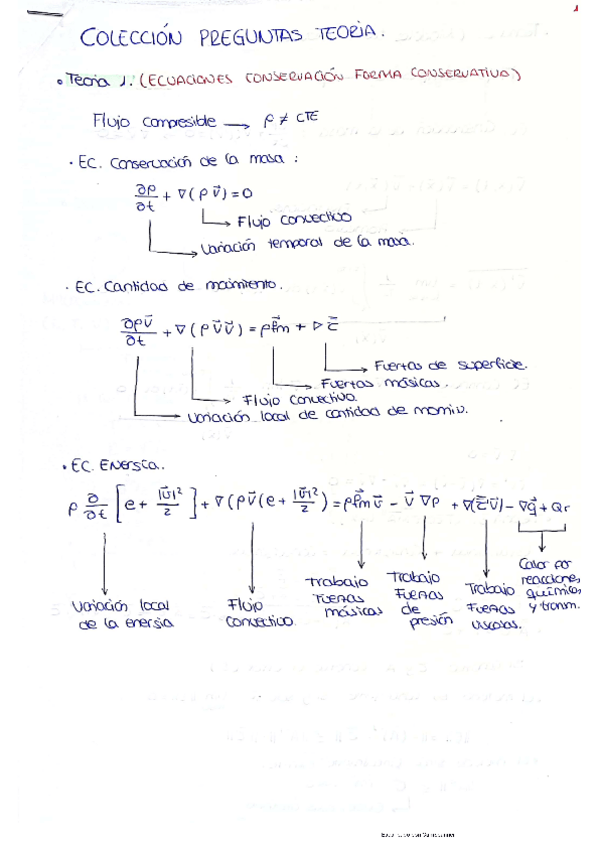 1
COLECCIÓN PREGUNTAS TEORIA.
• Teoria 1. (ECUACIONES CONSERVACIÓN FORMA CONSERVATIVO)
Flujo compresible → ρ ≠ CTE
· EC. Conservación de la masa :
∂ρ/∂t + ∇(ρ v⃗) = 0
Flujo convectivo
Variación temporal de la masa.
· EC. Cantidad de movimiento.
∂ρv⃗/∂t + ∇(ρ v⃗ v⃗) = ρf⃗m + ∇ τ̿
Fuerzas de superficie.
Fuerzas másicas.
Flujo convectivo.
Variación local de cantidad de momiv.
• EC. Energía.
ρ ∂/∂t [e + |v⃗|²/2] + ∇(ρv⃗(e + |v⃗|²/2) = ρf⃗m v⃗ - v⃗ ∇p + ∇(τ̿'v⃗) - ∇q⃗ + Qr
Variación local de la energía
Flujo convectivo.
Trabajo Fuerzas másicas
Trabajo Fuerzas de presión
Trabajo Fuerzas viscosas.
Calor por reacciones, químicas, y transm.